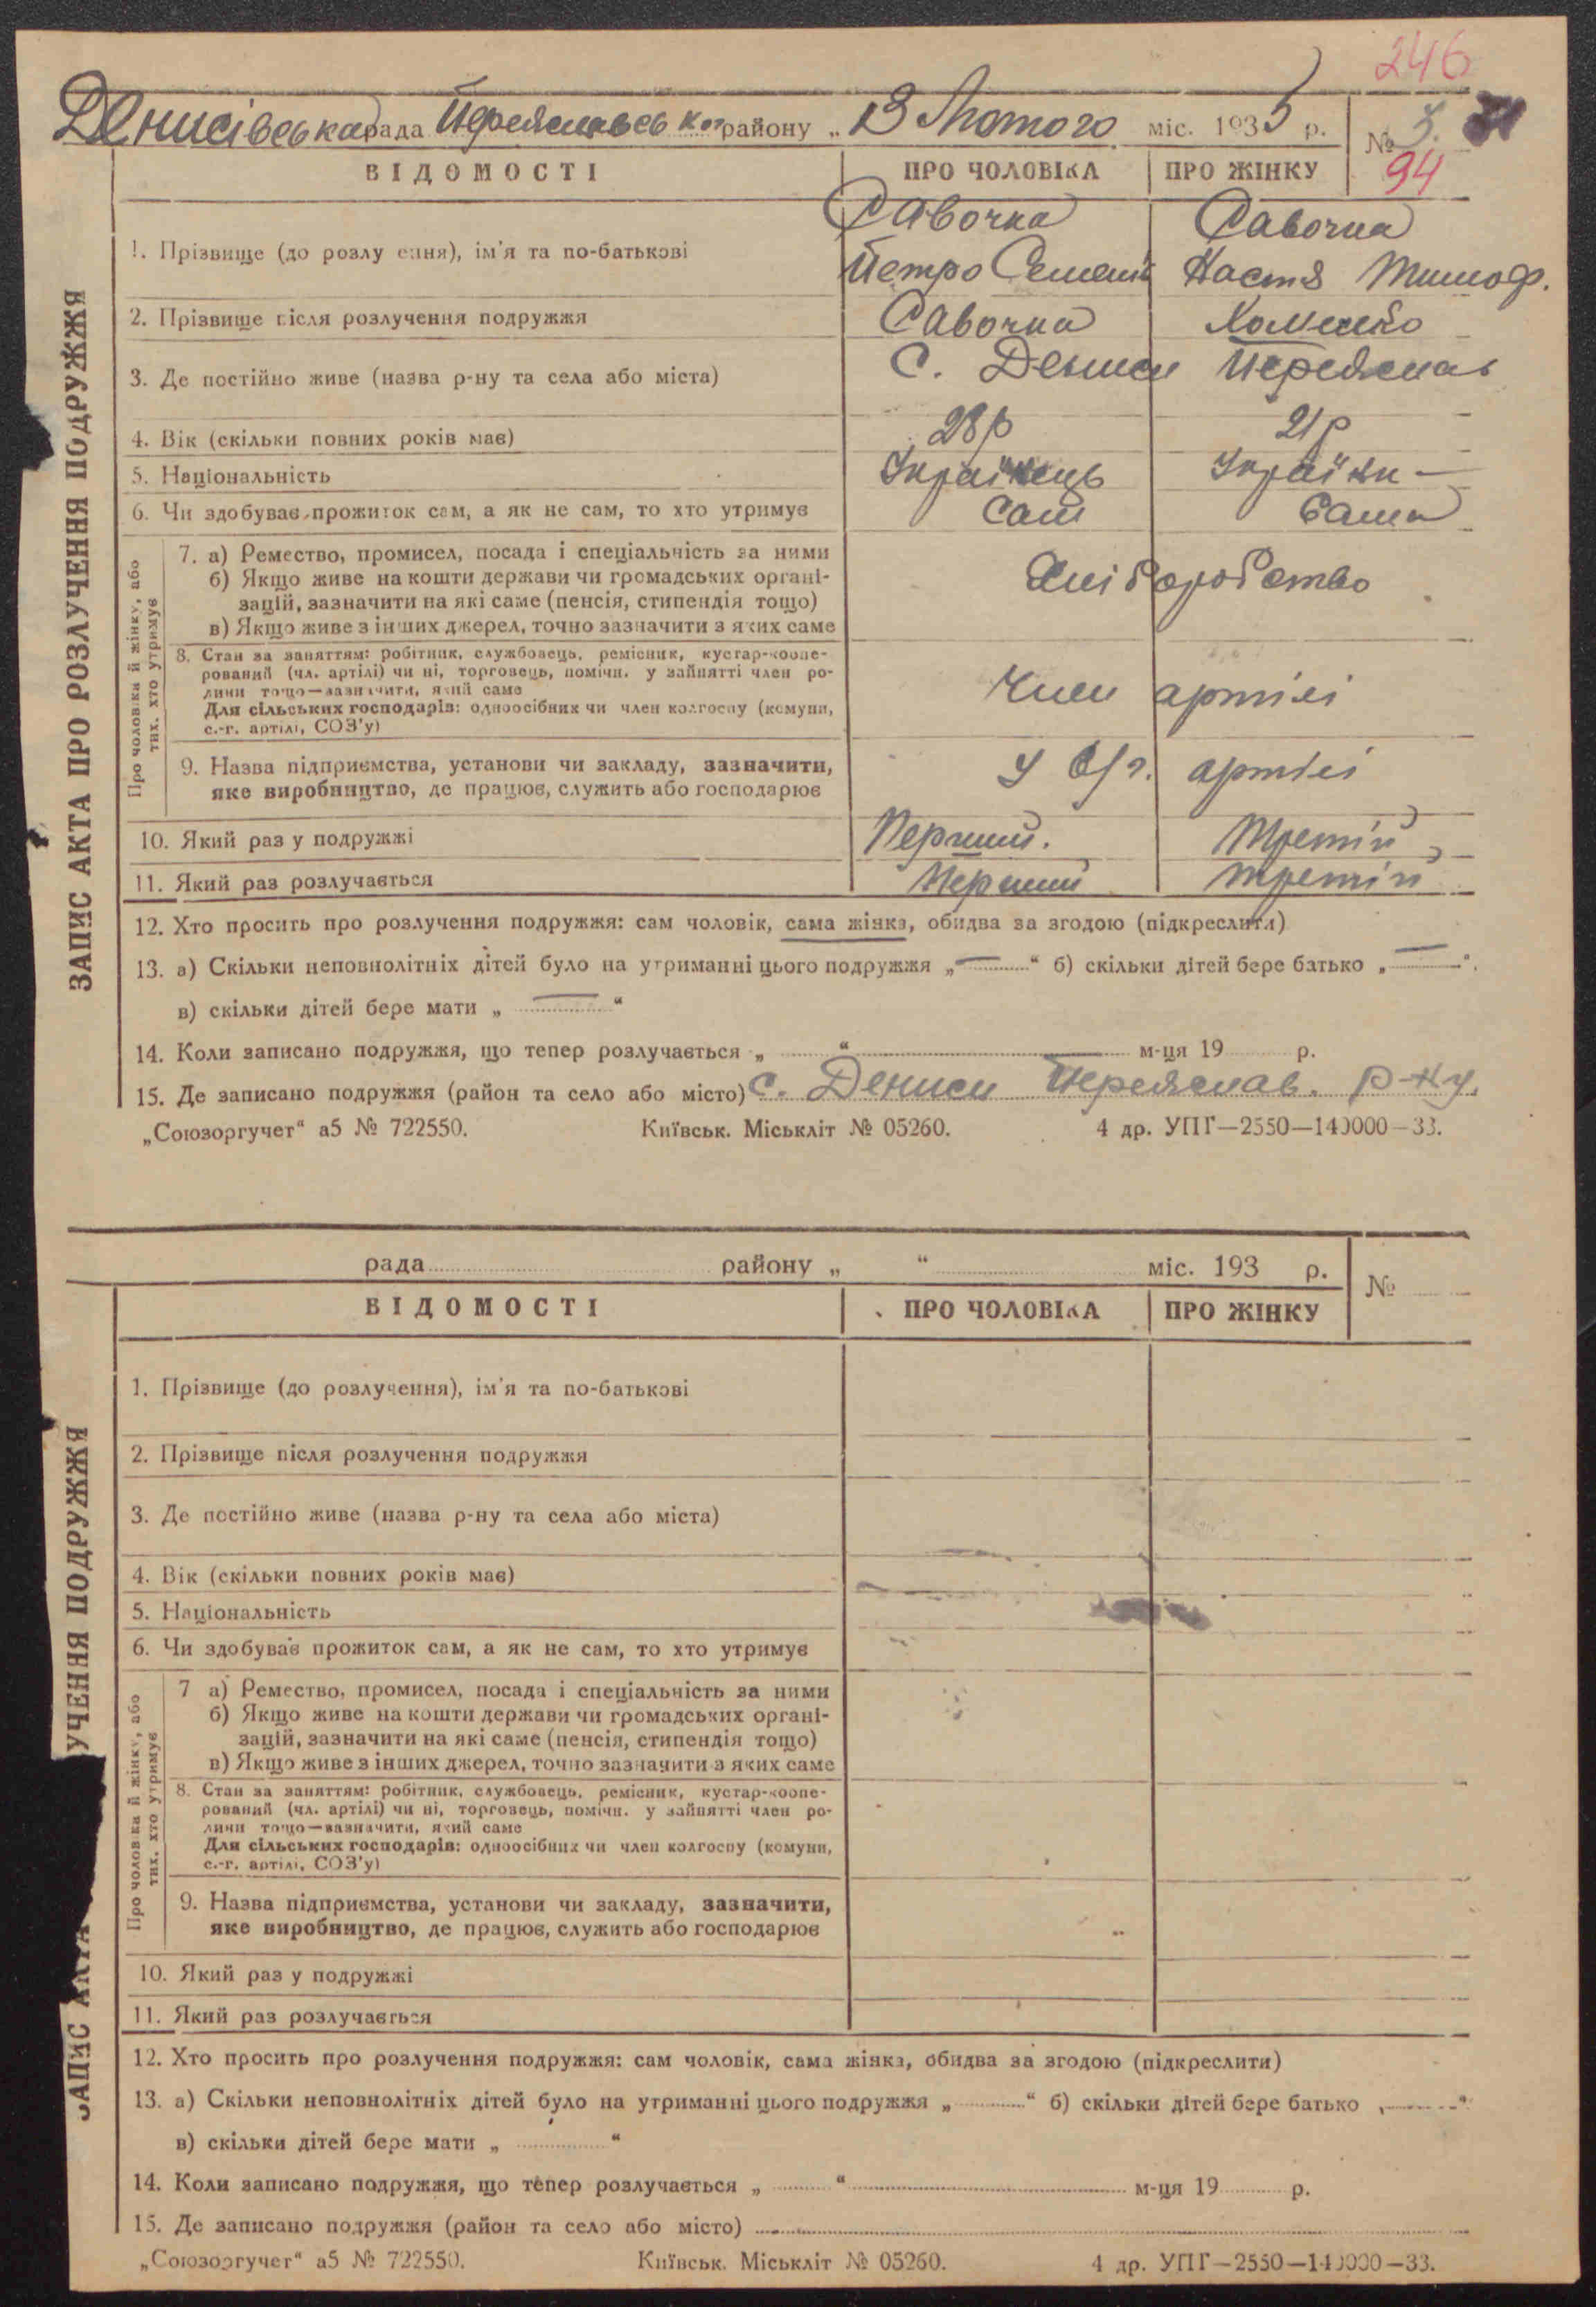 246
Денисівська рада Переяславськог району „13 Лютого міс. 1935 р. № 3.
94
ЗАПИС АКТА ПРО РОЗЛУЧЕННЯ ПОДРУЖЖЯ
ВІДОМОСТІ ПРО ЧОЛОВІКА ПРО ЖІНКУ
Савочка Савочка
1. Прізвище (до розлучення), ім'я та по-батькові Петро Семенів Настя Тимоф.
2. Прізвище після розлучення подружжя Савочка Хоменко
3. Де постійно живе (назва р-ну та села або міста) С. Дениси Переяслав
4. Вік (скільки повних років має) 28р 21р
5. Національність Українець Українк—
6. Чи здобуває прожиток сам, а як не сам, то хто утримує Сам Сама
Про чоловіка й жінку, або тих, хто утримує
7. а) Ремество, промисел, посада і спеціальність за ними
б) Якщо живе на кошти держави чи громадських органі- Хліборобство
зацій, зазначити на які саме (пенсія, стипендія тощо)
в) Якщо живе з інших джерел, точно зазначити з яких саме
8. Стан за заняттям: робітник, службовець, ремісник, кустар-коопе-
рований (чл. артілі) чи ні, торговець, помічн. у зайнятті член ро-
дини тощо—зазначити, який саме Член артілі
Для сільських господарів: одноосібник чи член колгоспу (комуни,
с.-г. артілі, СОЗ'у)
9. Назва підприємства, установи чи закладу, зазначити, У С/г. артілі
яке виробництво, де працює, служить або господарює
10. Який раз у подружжі Перший. Третій
11. Який раз розлучається Перший третій
12. Хто просить про розлучення подружжя: сам чоловік, сама жінка, обидва за згодою (підкреслити)
13. а) Скільки неповнолітніх дітей було на утриманні цього подружжя „—“ б) скільки дітей бере батько „—“.
в) скільки дітей бере мати „—“
14. Коли записано подружжя, що тепер розлучається „ “ — м-ця 19 р.
15. Де записано подружжя (район та село або місто) С. Дениси Переяслав. р-ну.
„Союзоргучет“ а5 № 722550. Київськ. Міськліт № 05260. 4 др. УПГ—2550—140000—33.
рада району „ “ міс. 193 р. №
УЧЕННЯ ПОДРУЖЖЯ
ЗАПИС АКТА
ВІДОМОСТІ ПРО ЧОЛОВІКА ПРО ЖІНКУ
1. Прізвище (до розлучення), ім'я та по-батькові
2. Прізвище після розлучення подружжя
3. Де постійно живе (назва р-ну та села або міста)
4. Вік (скільки повних років має)
5. Національність
6. Чи здобуває прожиток сам, а як не сам, то хто утримує
Про чоловіка й жінку, або тих, хто утримує
7 а) Ремество, промисел, посада і спеціальність за ними
б) Якщо живе на кошти держави чи громадських органі-
зацій, зазначити на які саме (пенсія, стипендія тощо)
в) Якщо живе з інших джерел, точно зазначити з яких саме
8. Стан за заняттям: робітник, службовець, ремісник, кустар-коопе-
рований (чл. артілі) чи ні, торговець, помічн. у зайнятті член ро-
дини тощо—зазначити, який саме
Для сільських господарів: одноосібник чи член колгоспу (комуни,
с.-г. артілі, СОЗ'у)
9. Назва підприємства, установи чи закладу, зазначити,
яке виробництво, де працює, служить або господарює
10. Який раз у подружжі
11. Який раз розлучається
12. Хто просить про розлучення подружжя: сам чоловік, сама жінка, обидва за згодою (підкреслити)
13. а) Скільки неповнолітніх дітей було на утриманні цього подружжя „ “ б) скільки дітей бере батько „ “
в) скільки дітей бере мати „ “
14. Коли записано подружжя, що тепер розлучається „ “ м-ця 19 р.
15. Де записано подружжя (район та село або місто)
„Союзоргучет“ а5 № 722550. Київськ. Міськліт № 05260. 4 др. УПГ—2550—140000—33.